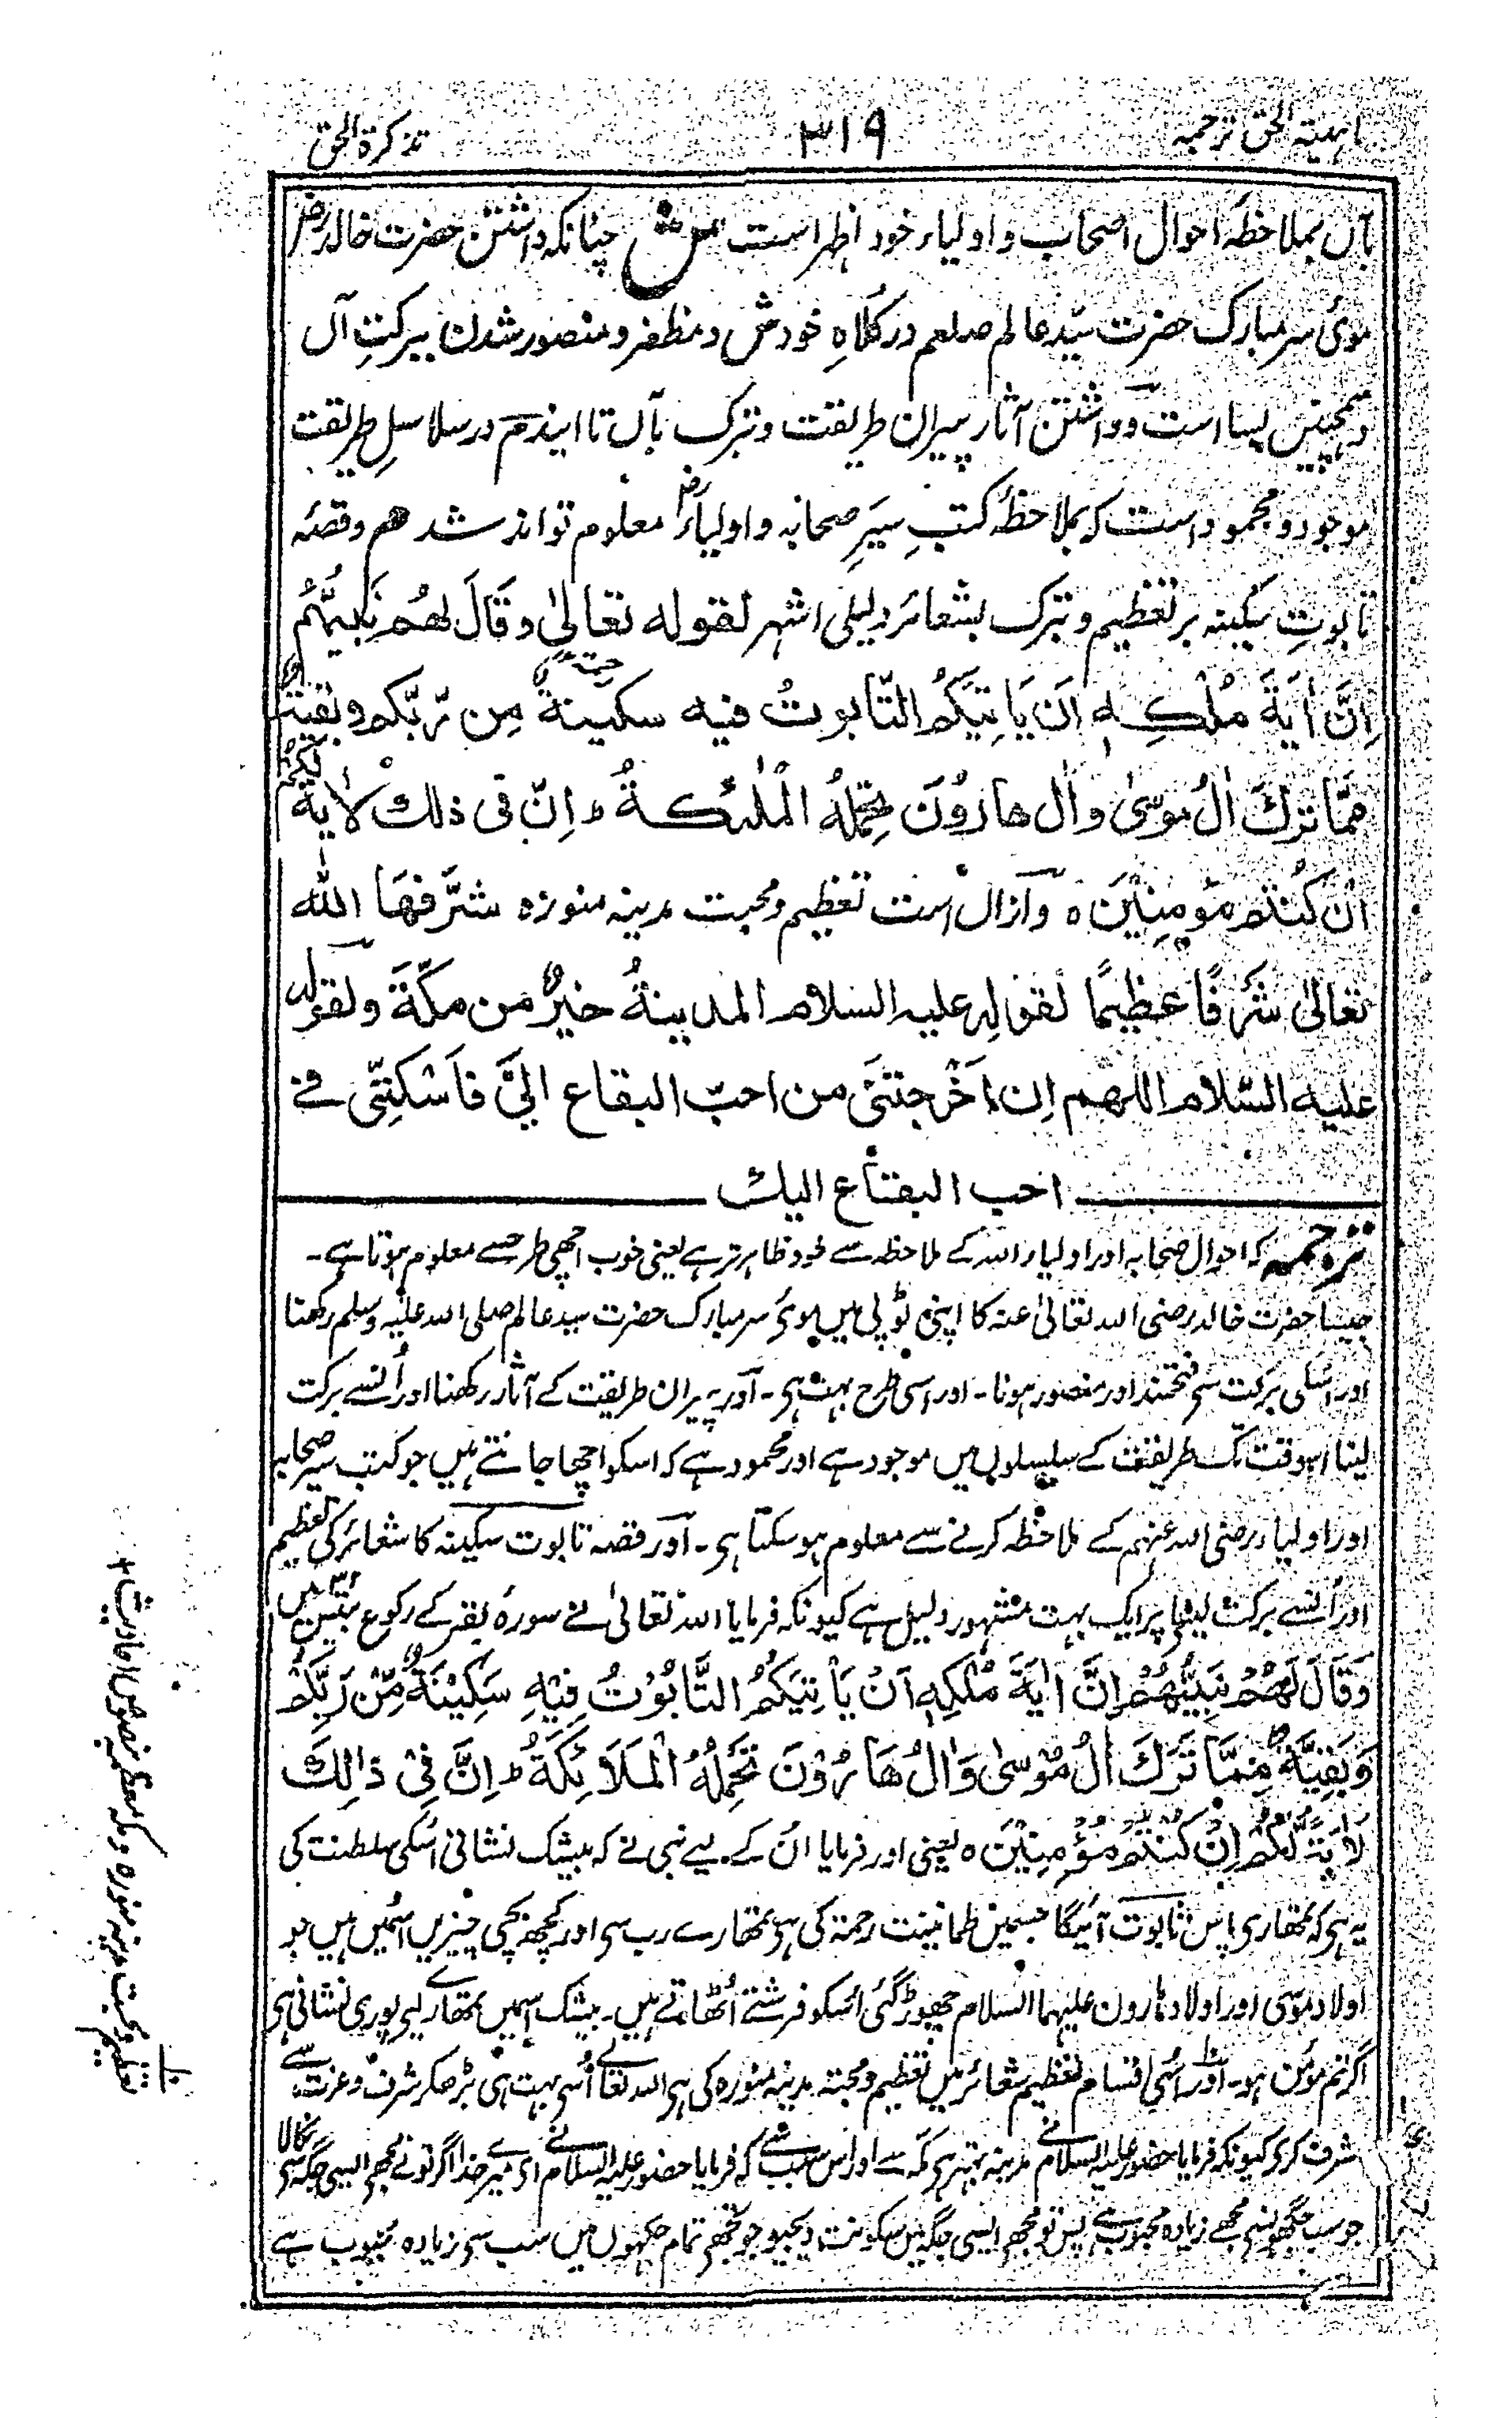 ترجمہ ۳۱۹ تذکرۃ الحق
بآں بملاحظۂ احوال اصحاب و اولیاء خود اظہر است ش چنانکہ داشتن حضرت خالد رض
موی سر مبارک حضرت سید عالم صلعم در کلاہِ خودش و مظفر و منصور شدن ببرکتِ آں
و ہمچنیں بسیار است و داشتن آثار پیران طریقت و تبرک بآں تا ایندم در سلاسلِ طریقت
موجود و محمود است کہ بملاحظۂ کتبِ سِیَرِ صحابہ و اولیاء رض معلوم تواند شد هم و قصّہ
تابوتِ سکینہ بر تعظیم و تبرک بشعائر دلیلی اشہر لقوله تعالیٰ وَقَالَ لهُم نَبِیُّهُم
اِنَّ اٰیَةَ مُلْکِهٖ اَن یَاتِیَکُمُ التّابوتُ فیه سکینةٌ مِن رّبّکم وبقیةٌ
مّمّا تَرَكَ اٰلُ موسیٰ واٰل هارُوْنَ تحْمِلُهُ الْمَلٰئکةُ ط اِنّ فی ذلك لاٰیةً لّکم
اِن کُنْتم مؤمِنِیْنَ ہ وازاں است تعظیم و محبت مدینہ منورہ شَرَّفَهَا الله
تعالیٰ شَرَفًا عظیمًا لقوله علیه السلام المدینةُ خیرٌ من مکّةَ ولقوله
علیه السّلام اللهم اِن اَخْرجتنی من احبّ البقاع الیَّ فاَسْکنّی فے
احب البقاع الیك
ترجمہ کہ احوال صحابہ اور اولیاء اللہ کے ملاحظہ سے خود ظاہر تر ہے یعنی خوب اچھی طرحسے معلوم ہوتا ہے۔
جیسا حضرت خالد رضی اللہ تعالیٰ عنہ کا اپنی ٹوپی میں موئ سر مبارک حضرت سید عالم صلی اللہ علیہ وسلم رکھنا
اور اسکی برکت سی فتحمند اور منصور ہونا۔ اور اسی طرح بہت ہی۔ اور پیران طریقت کے آثار رکھنا اور اُنسے برکت
لینا اسوقت تک طریقت کے سلسلوں میں موجود ہے اور محمود ہے کہ اسکو اچھا جانتے ہیں جو کتب سیر صحابہ
اور اولیاء رضی اللہ عنہم کے ملاحظہ کرنے سے معلوم ہوسکتا ہی۔ اور قصہ تابوت سکینہ کا شعائر کی تعظیم
اور اُنسے برکت لینی پر ایک بہت مشہور دلیل ہے کیونکہ فرمایا اللہ تعالیٰ نے سورۂ بقر کے رکوع میں
وَقَالَ لَهُمْ نَبِیُّهُمْ اِنَّ اٰیَةَ مُلْکِهٖ اَنْ یَاْتِیَکُمُ التَّابُوْتُ فِیْهِ سَکِیْنَةٌ مِّنْ رَّبِّکُمْ
وَبَقِیَّةٌ مِّمَّا تَرَكَ اٰلُ مُوْسٰی وَاٰلُ هَارُوْنَ تَحْمِلُهُ الْمَلَائِکَةُ ط اِنَّ فِیْ ذَالِكَ
لَاٰیَةً لَّکُمْ اِنْ کُنْتُمْ مُؤْمِنِیْنَ ہ یعنی اور فرمایا ان کے لیے نبی نے کہ بیشک نشانی اسکی سلطنت کی
یہ ہی کہ تمھاری پاس تابوت آئیگا جسمیں طمانینت رحمة کی ہی تمھارے رب سی اور کچھ بچی چیزیں اسمیں ہیں جو
اولاد موسی اور اولاد ہارون علیہما السلام چھوڑ گئی اسکو فرشتے اُٹھاتے ہیں۔ بیشک اسمیں تمھارے لیے پوری نشانی ہی
اگر تم مؤمن ہو۔ اور اسی اقسام تعظیم شعائر میں تعظیم و محبتہ مدینہ منورہ کی ہی اللہ تعالیٰ اُسی بہت ہی بڑھکر شرف و عزت سے
شرف کری کیونکہ فرمایا حضور علیہ السلام نے مدینہ بہتر ہی مکہ سے اور اس سبب سے کہ فرمایا حضور علیہ السلام نے ای میرے خدا اگر تونے مجھی ایسی جگہ سی نکالا
جو سب جگھونسی مجھے زیادہ محبوب ہے پس تو مجھی ایسی جگہ میں سکونت دیجیو جو تجھی تمام جگہوں میں سب سی زیادہ محبوب ہے